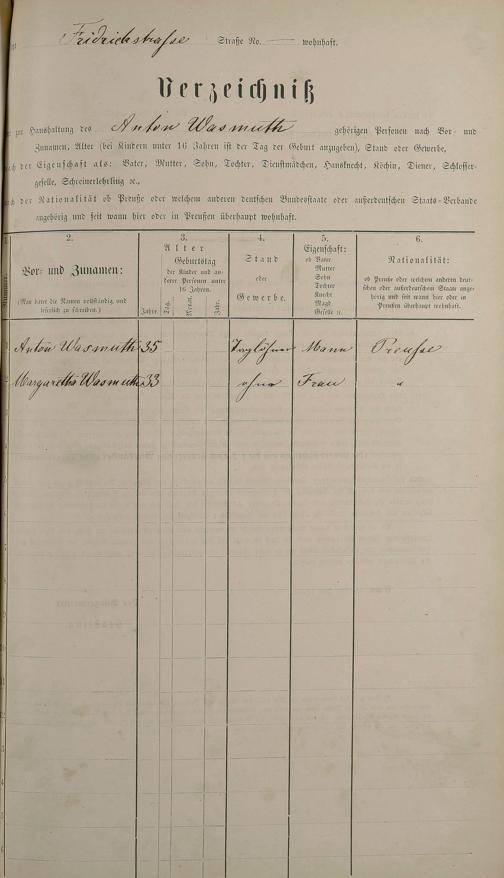 Fridrichstrasse Straße No. — wohnhaft.
Verzeichniß
zur Haushaltung des Anton Wasmuth gehörigen Personen nach Vor- und
Zunamen, Alter (bei Kindern unter 16 Jahren ist der Tag der Geburt anzugeben), Stand oder Gewerbe,
nach der Eigenschaft als: Vater, Mutter, Sohn, Tochter, Dienstmädchen, Hausknecht, Köchin, Diener, Schlosser-
geselle, Schreinerlehrling ꝛc.,
nach der Nationalität ob Preuße oder welchem anderen deutschen Bundesstaate oder außerdeutschen Staats-Verbande
angehörig und seit wann hier oder in Preußen überhaupt wohnhaft.
2.
Vor- und Zunamen:
(Man bittet die Namen vollständig und
leserlich zu schreiben.)
3.
Alter
Geburtstag
der Kinder und an-
derer Personen unter
16 Jahren.
Jahre.
Tag.
Monat.
Jahr.
4.
Stand
oder
Gewerbe.
5.
Eigenschaft:
ob Vater
Mutter
Sohn
Tochter
Knecht
Magd
Geselle ꝛc.
6.
Nationalität:
ob Preuße oder welchem anderen deut-
schen oder außerdeutschen Staate ange-
hörig und seit wann hier oder in
Preußen überhaupt wohnhaft.
Anton Wasmuth 35 Taglöhner Mann Preuße
Margaretha Wasmuth 33 ohne Frau "